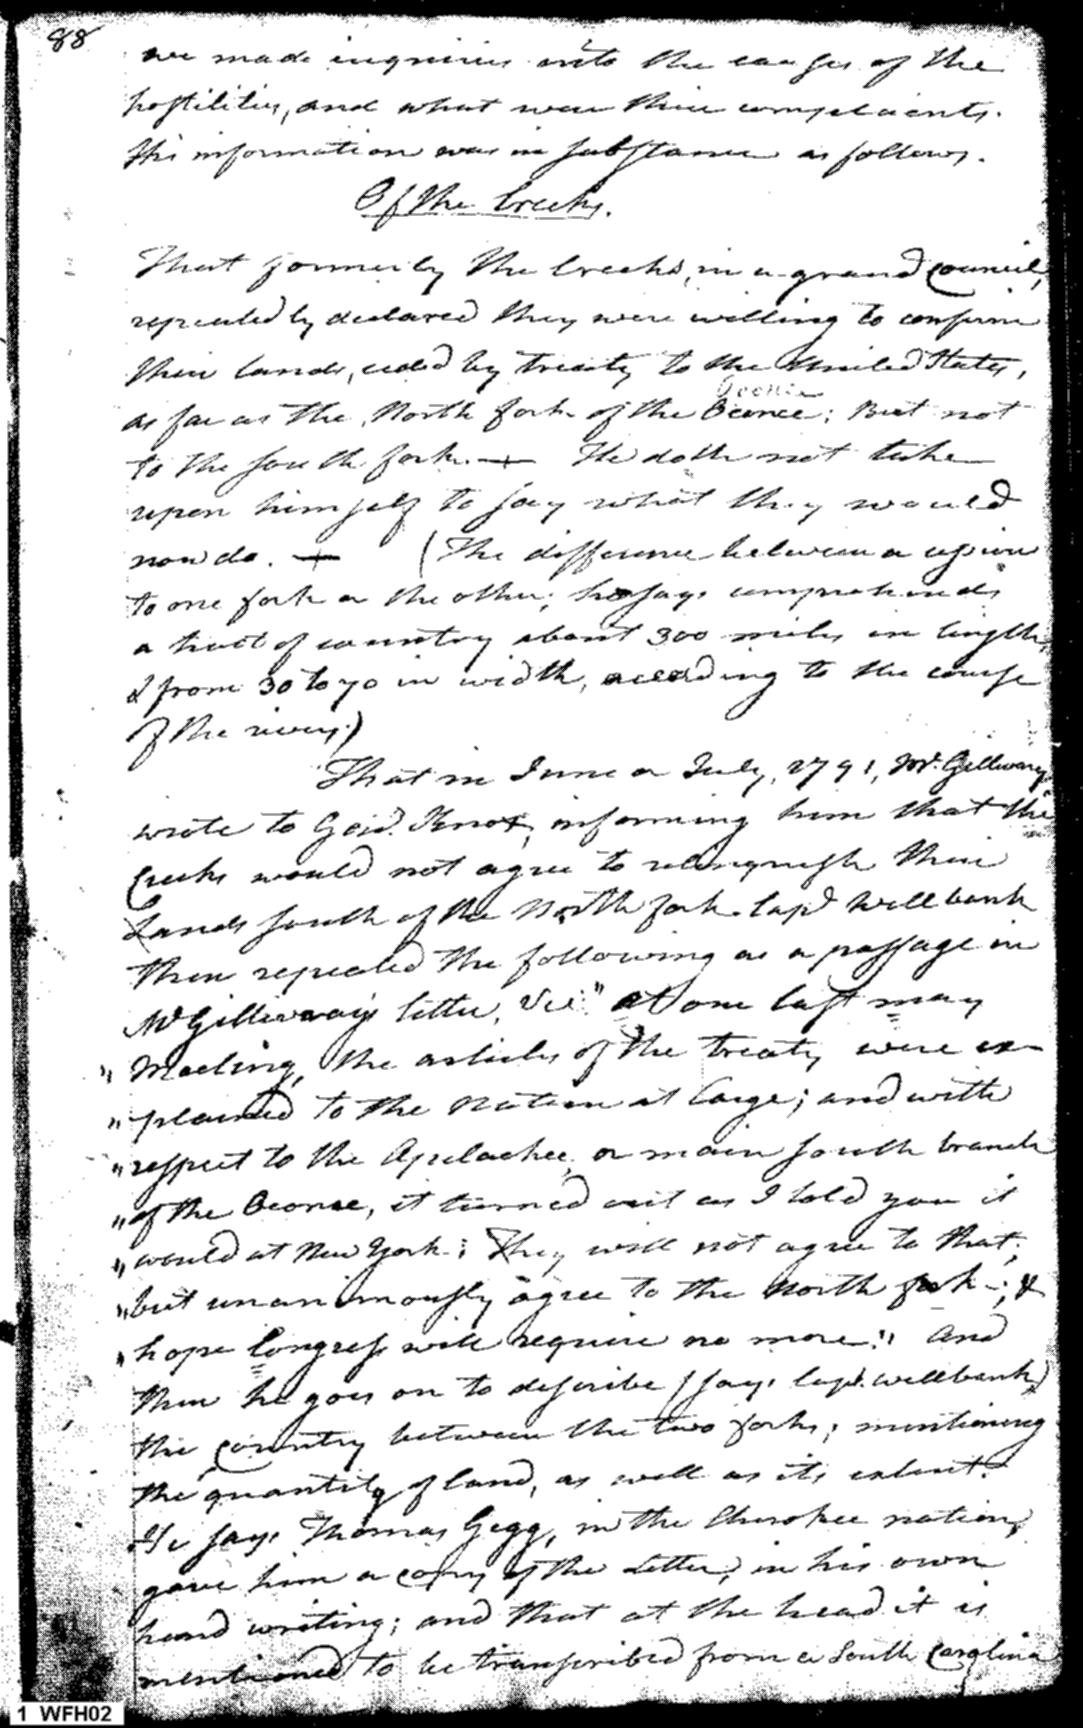 88
we made inquiries into the causes of the
hostilities, and what were their complaints.
His information was in substance as follows.
Of the Creeks.
That formerly the Creeks, in a grand Council,
repeatedly declared they were willing to confirm
their lands, ceded by treaty to the United States,
Oconee
as far as the North fork of the Oconee: But not
to the south fork. — He doth not take
upon himself to say what they would
now do. — (The difference between a cession
to one fork or the other, he says comprehends
a tract of country about 300 miles in length,
& from 30 to 70 in width, according to the course
of the rivers.)
That in June or July, 1791, Mr. Gillivray
wrote to Genl. Knox, informing him that the
Creeks would not agree to relinquish their
Lands south of the North fork. Capt Wellbank
then repeated the following as a passage in
McGillivray's letter, Viz. "At our last may
" Meeting, the articles of the treaty were ex-
" plained to the Nation at large; and with
" respect to the Apelachee, or main south branch
" of the Oconee, it turned out as I told you it
" would at New York: They will not agree to that;
" but unanimously agree to the North fork; &
" hope Congress will require no more:" And
then he goes on to describe (says Capt. Wellbank)
the country between the two forks; mentioning
the quantity of land, as well as its extent.
He says Thomas Gegg, in the Cherokee nation,
gave him a copy of the Letter, in his own
hand writing; and that at the head it is
mentioned to be transcribed from a South Carolina
1 WFH02